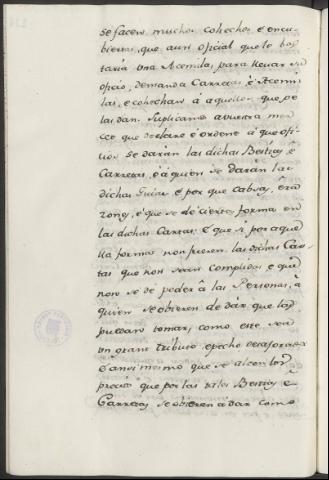 se facen muchos cohechos, é encu-
biertas, que aun oficial que le bas-
taria una Acemila, para llevar su
oficio, demanda Carretas, é Acemi-
las, é cohechan à aquellos que ge
las dan. Suplicamos a vuestra mer-
ced que declare é ordene à que ofi-
cios se daràn las dichas Bestias, é
Carretas, ó à quien se daràn las
dichas Guias é por que cabsas, é ra-
zones, é que se dé cierta forma en
las dichas Cartas: E que si por aque-
lla forma non fueren las dichas Car-
tas que non sean complidas é que
non se dé poder à las Personas, à
quien se obieren de dar que las
puedan tomar, como este sea
un grant tributo, é pecho desaforado,
é ansi mesmo que se alcen los
precios que por las tales Bestias é
Carretas, se obieren à dar como